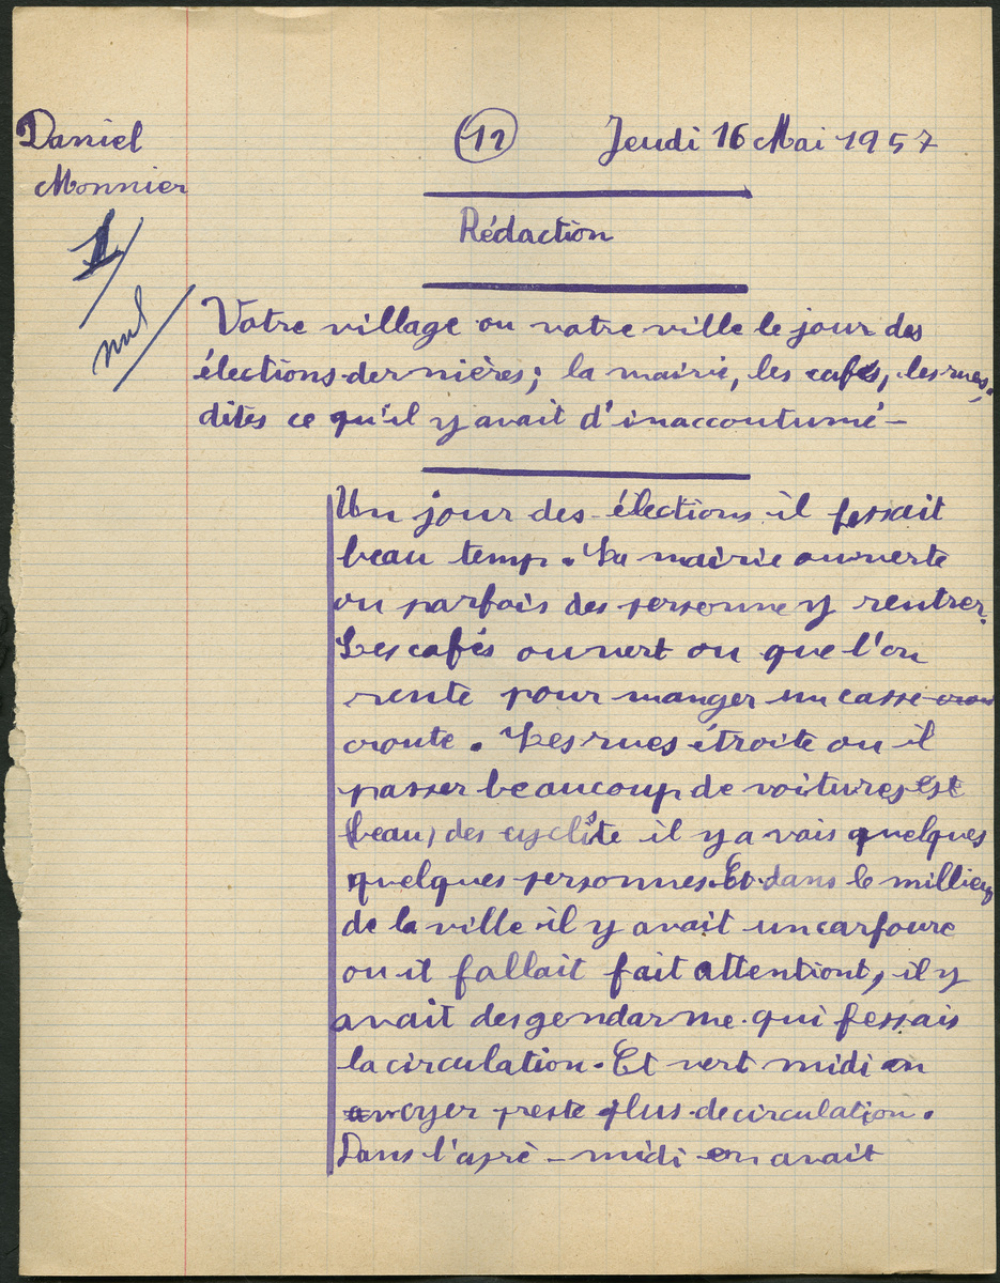 Daniel
Monnier
1
nul
12
Jeudi 16 Mai 1957
Rédaction
Votre village ou votre ville le jour des
élections dernières; la mairie, les cafés, les rues,
dites ce qu'il y avait d'inaccoutumé-
Un jour des élections il fessait
beau temp. La mairie ouverte
ou parfois des personne y rentrer.
Les cafés ouvert ou que l'on
rente pour manger un casse-crou
croute. Les rues étroite ou il
passer beaucoup de voitures est
(beau) des cycliste il y a vais quelques
quelques personnes. Et dans le millieu
de la ville il y avait un carfourc
ou it fallait fait attentiont, il y
avait des gendarme qui fessais
la circulation. Et vert midi on
voyer preste plus de circulation.
Dans l'aprè-midi on avait